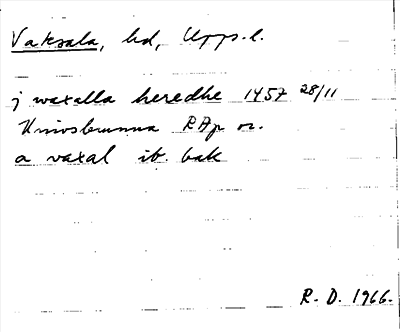 Vaksala, hd, Upps. l.
j waxalla heredhe 1457 28/11
RAp or.
a vaxal ib. bak
R. D. 1966.